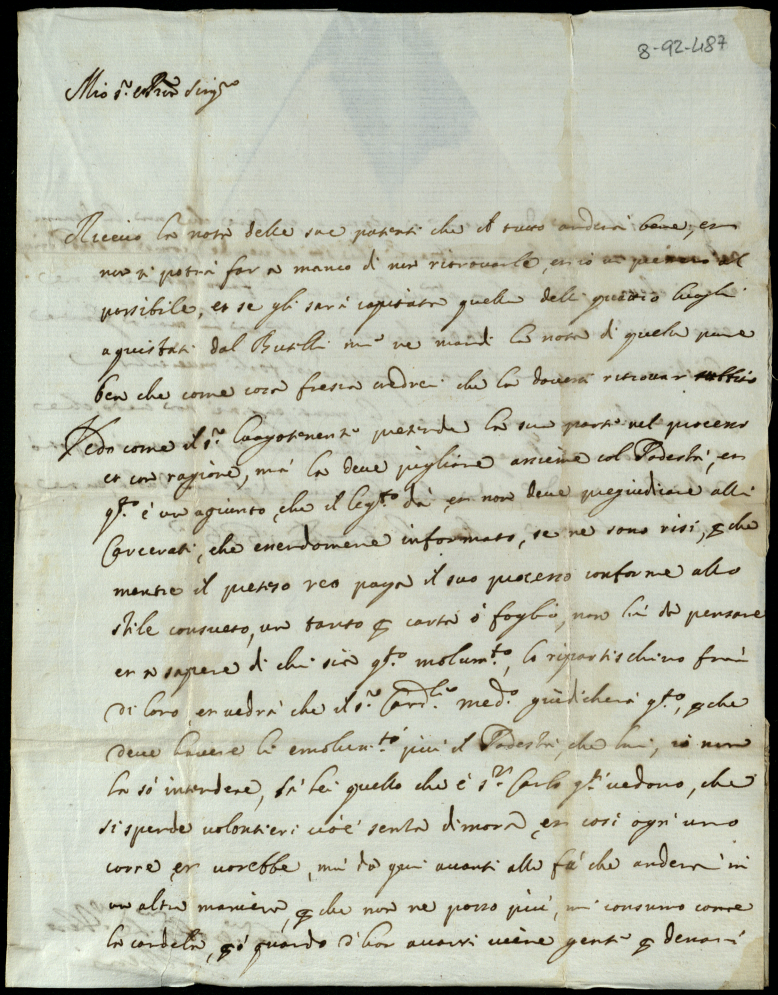 8-92-487
Mio S.r e Pron Sing.o
Riceuo la nota delle sue patenti che il tutto anderà bene, et
non si potrà far a manco di non ritrouarle, et io un pensiero al
possibile, et se gli sarà capitata quella delli quattro luoghi
aquistati dal Buselli mi ne mandi la nota di quella pure
ben che come cosa fresca crederei che la douerà ritrouar subbito
Vedo come il S.r Luogotenente pretende la sua parte nel processo
et con ragione, mà la deve pigliare assieme col Podestà, et
q.to è un agiunto, che il leg.to dà, et non deve pregiudicare alli
Carcerati, che essendomene informato, se ne sono risi, p che
mentre il preteso reo paga il suo processo conforme allo
stile consueto, un tanto p carta ò foglio, non hà da pensare
et a sapere di chi sia q.to molum.to, lo ripartischino frà
di loro, et vedrà che il S.r Card.le med.o giudicherà q.to, p che
deve hauere li emolum.ti più il Podestà, che lui, io non
la sò intendere, sà lei quello che è S.r Carlo q.ti vedono, che
si spende volontieri cioè senza dimora, et così ogni uno
corre, et vorebbe, mà da qui auanti alla fà che anderà in
un altra maniera, p che non ne posso più, mi consumo come
la candela, p quando d'hor auanti viene genti p denari